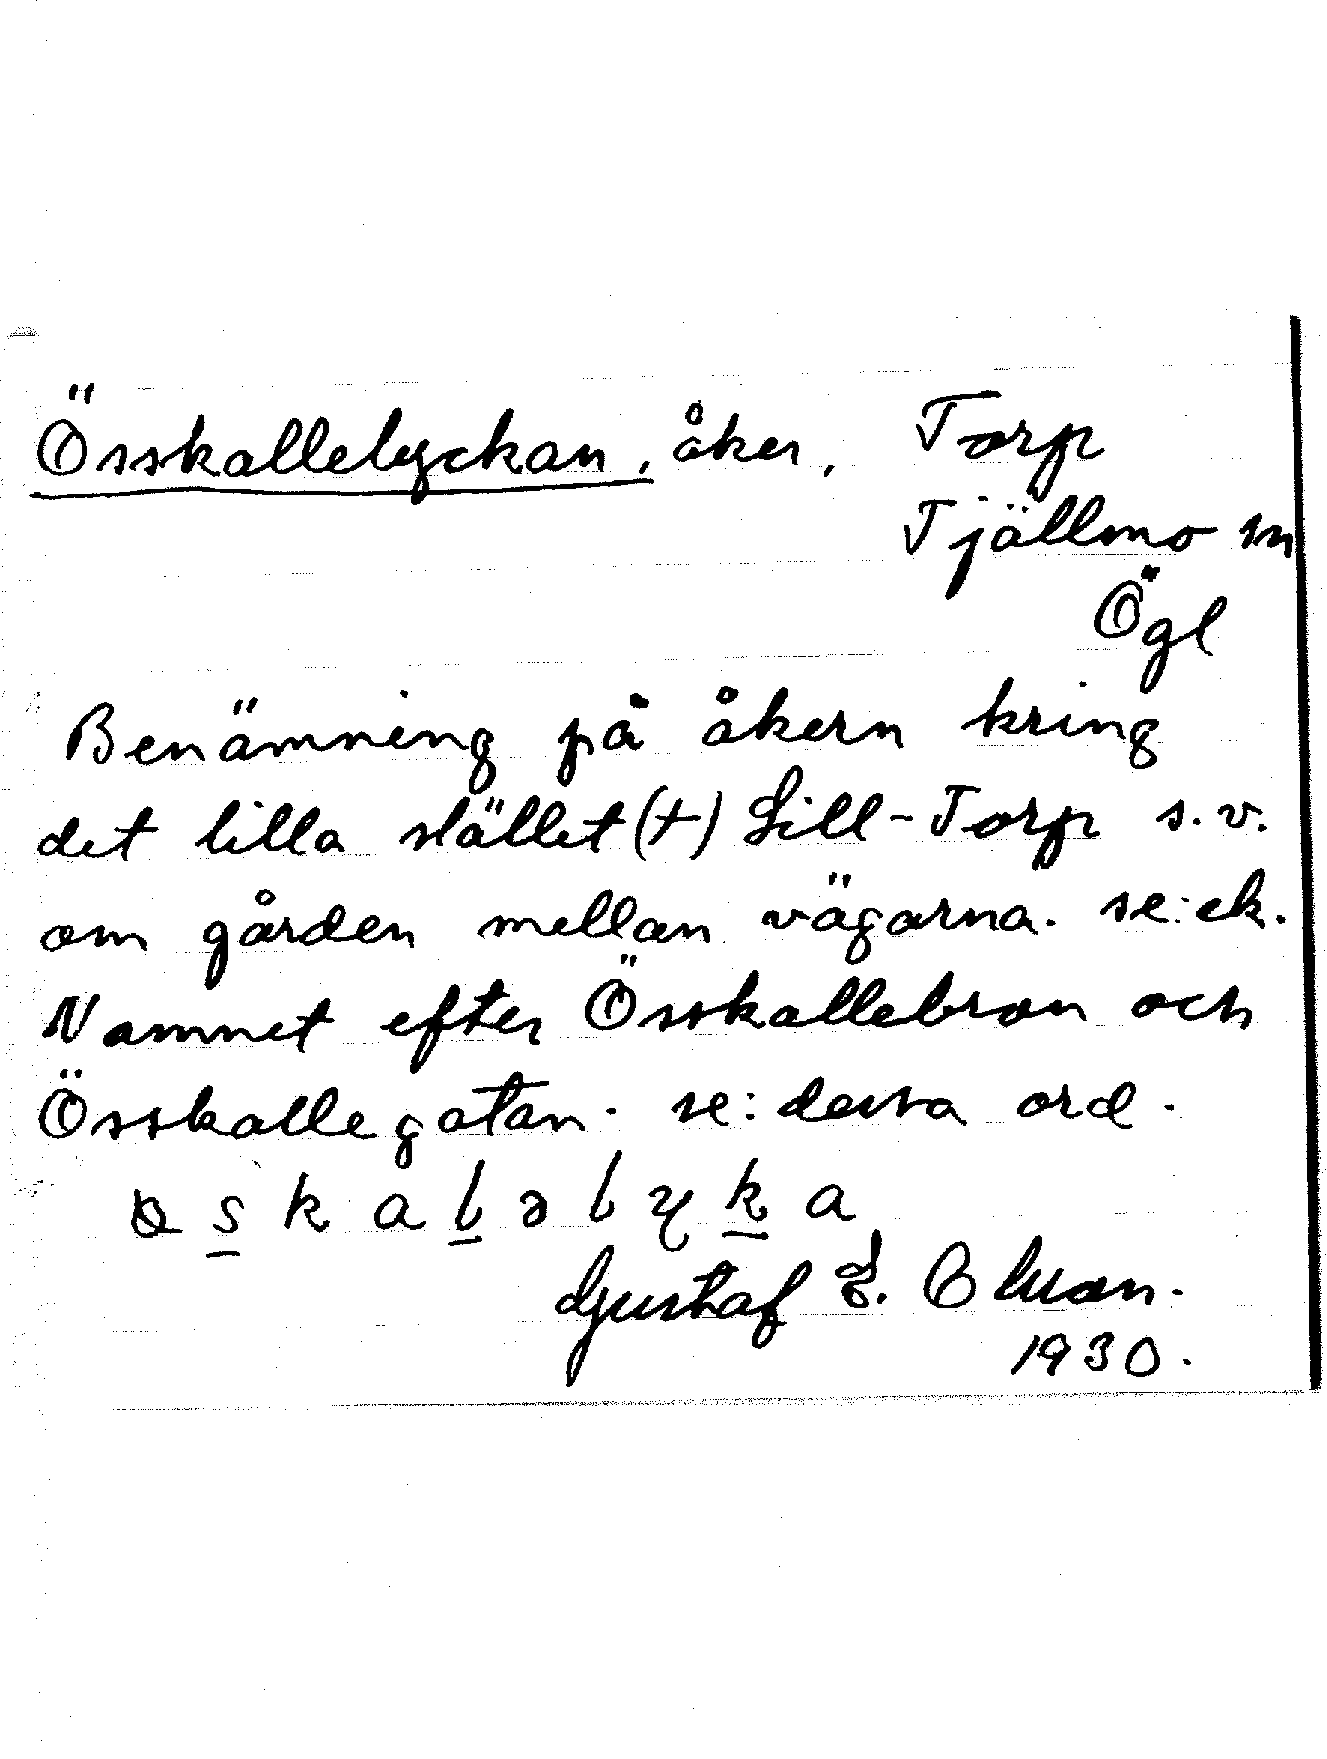 Össkallelyckan, åker, Torp
Tjällmo sn
Ögl
Benämning på åkern kring
det lilla stället (+) Lill-Torp s.v.
om gården mellan vägarna. se: ek.
Namnet efter Össkallebron och
Össkallegatan. se: dessa ord.
s k a l ə l y k a
Gustaf
1930.